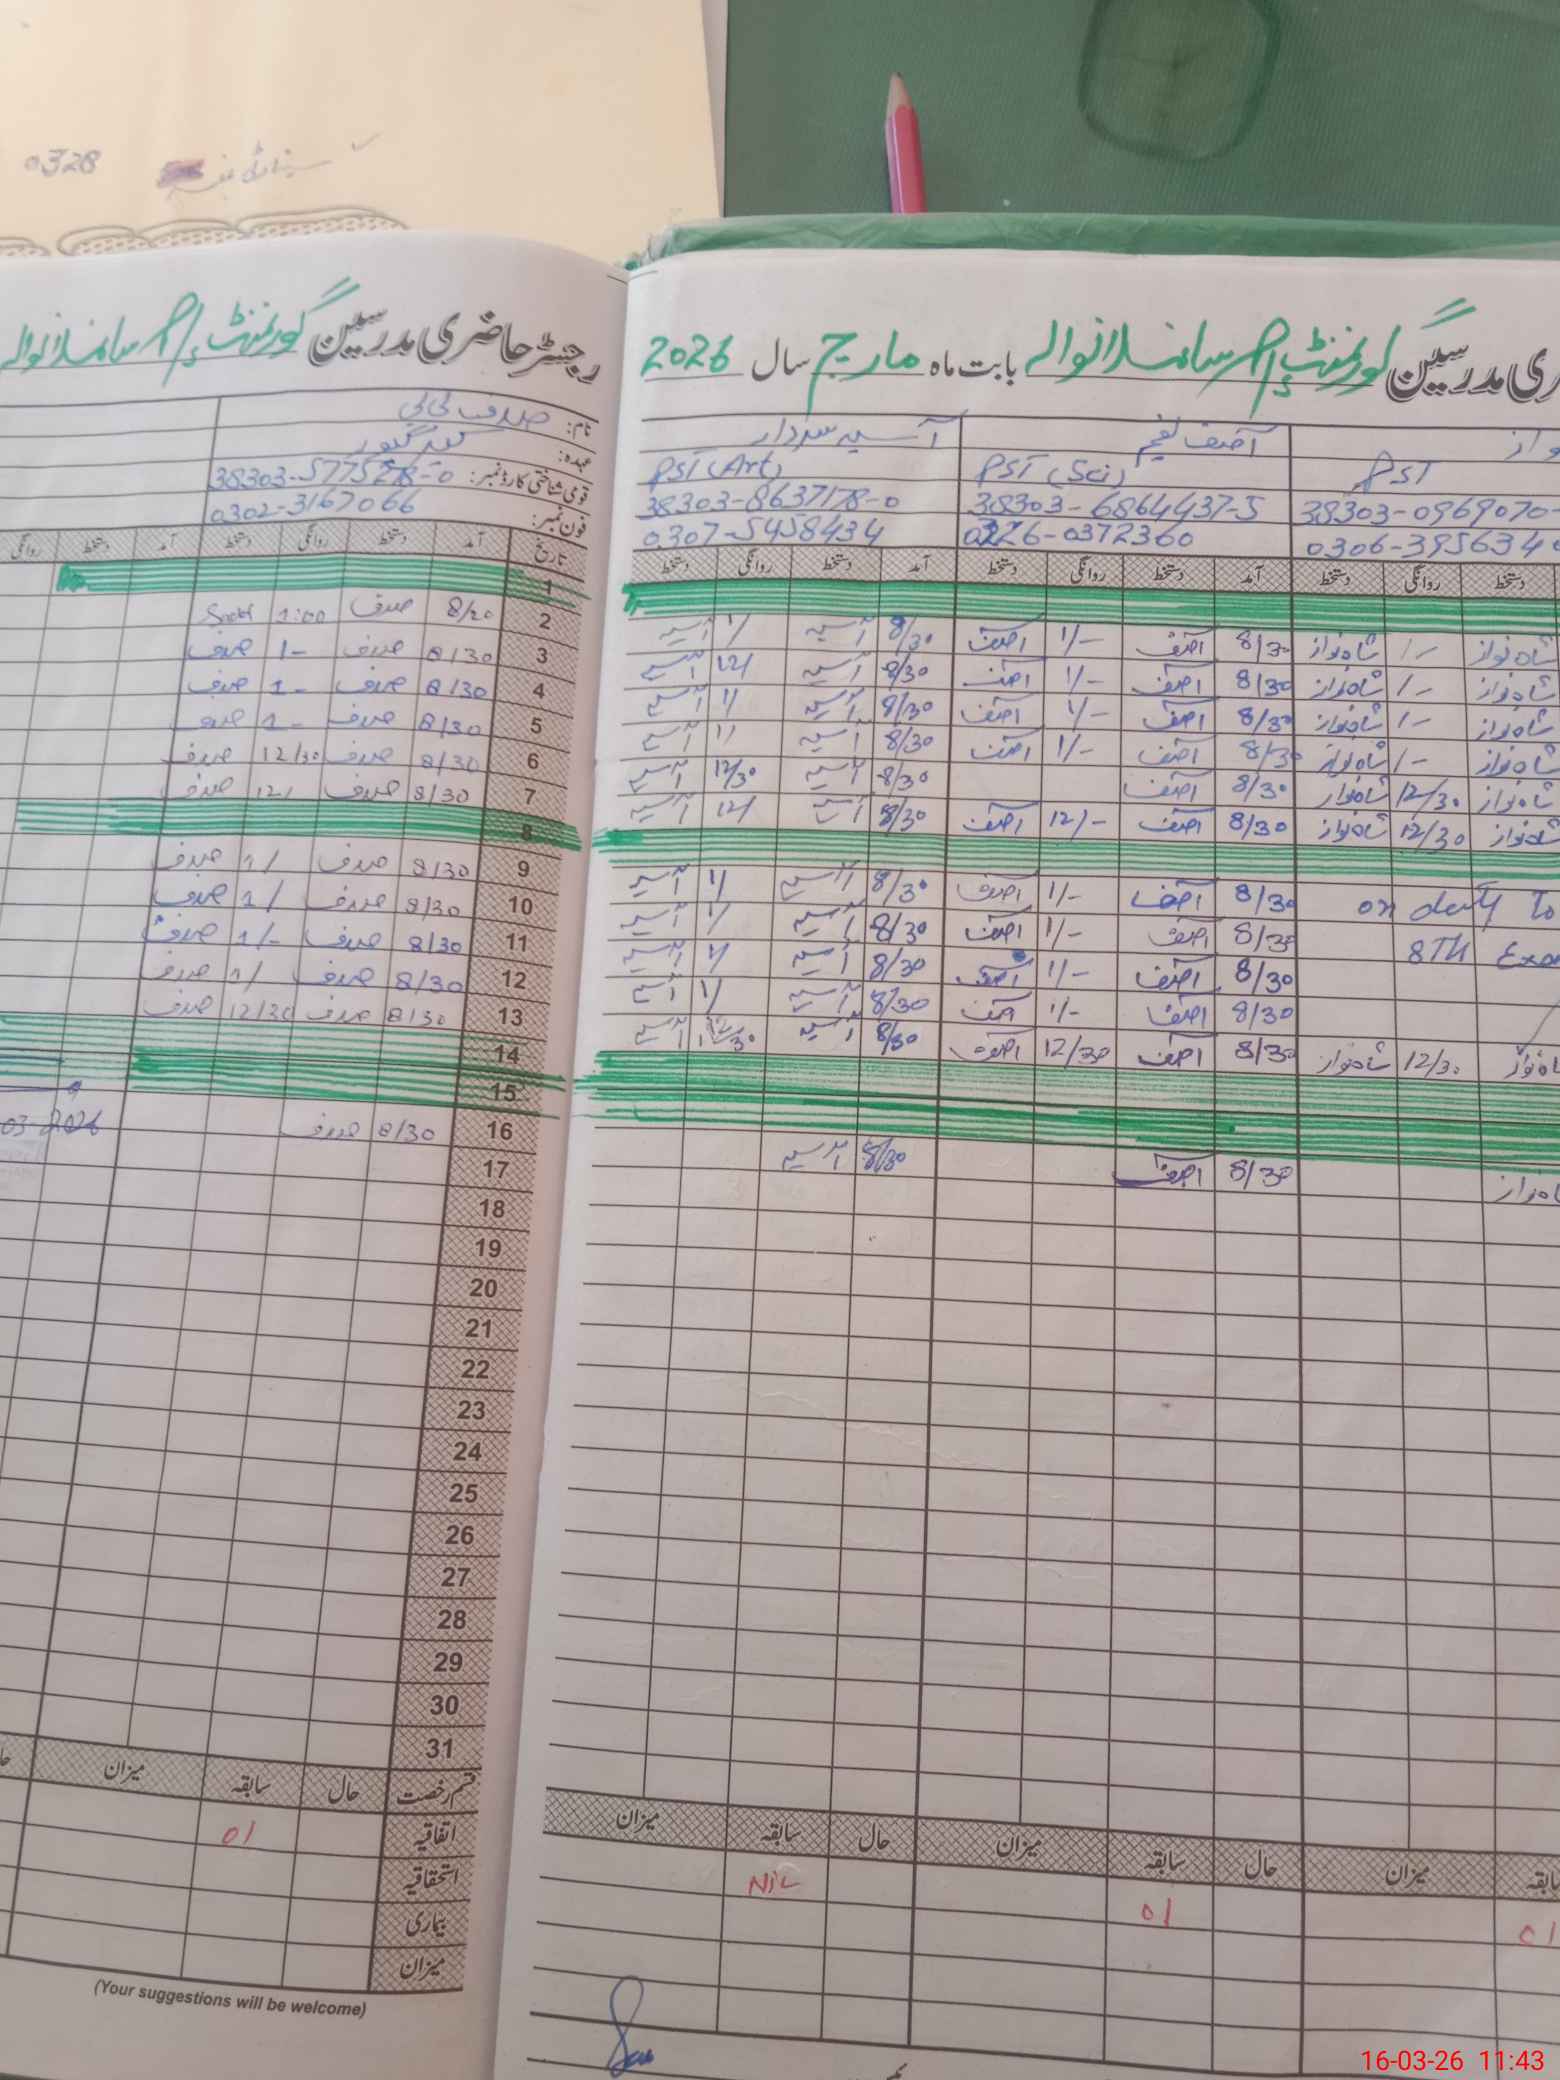 0328
رجسٹر حاضری مدرسین گورنمنٹ
نام: صدف بی بی
عہدہ: کیئر گیور
قومی شناختی کارڈ نمبر: 38303-5775278-0
فون نمبر: 0302-3167066
تاریخ آمد دستخط روانگی دستخط آمد دستخط روانگی
1
2 8/20 صدف 1:00
3 8/30 صدف 1- صدف
4 8/30 صدف 1- صدف
5 8/30 صدف 1- صدف
6 8/30 صدف 12/30 صدف
7 8/30 صدف 12/ صدف
8
9 8/30 صدف 1/ صدف
10 8/30 صدف 1/ صدف
11 8/30 صدف 1/- صدف
12 8/30 صدف 1/ صدف
13 8/30 صدف 12/30 صدف
14
15
16 8/30 صدف
03-2026
17
18
19
20
21
22
23
24
25
26
27
28
29
30
31
قسم رخصت حال سابقہ میزان
اتفاقیہ 01
استحقاقیہ
بیماری
میزان
(Your suggestions will be welcome)
ری مدرسین گورنمنٹ بابت ماہ مارچ سال 2026
آصف نعیم آسیہ سردار
PST PST (Sci) PST (Art)
38303-0969070- 38303-6864437-5 38303-8637178-0
0306-395634 0326-0372360 0307-5458434
دستخط روانگی دستخط آمد دستخط روانگی دستخط آمد دستخط روانگی دستخط
شاہ نواز 1/- شاہ نواز 8/30 آصف 1/- آصف 8/30 آسیہ 1/ آسیہ
شاہ نواز 1/- شاہ نواز 8/30 آصف 1/- آصف 8/30 آسیہ 12/ آسیہ
شاہ نواز 1/- شاہ نواز 8/30 آصف 1/- آصف 8/30 آسیہ 1/ آسیہ
شاہ نواز 1/- شاہ نواز 8/30 آصف 1/- آصف 8/30 آسیہ 1/ آسیہ
شاہ نواز 12/30 شاہ نواز 8/30 آصف 8/30 آسیہ 12/30 آسیہ
شاہ نواز 12/30 شاہ نواز 8/30 آصف 12/- آصف 8/30 آسیہ 12/ آسیہ
on duty To 8/30 آصف 1/- آصف 8/30 آسیہ 1/ آسیہ
8TH Exa 8/30 آصف 1/- آصف 8/30 آسیہ 1/ آسیہ
8/30 آصف 1/- آصف 8/30 آسیہ 1/ آسیہ
8/30 آصف 1/- آصف 8/30 آسیہ 1/ آسیہ
شاہ نواز 12/30 شاہ نواز 8/30 آصف 12/30 آصف 8/30 آسیہ 12/30 آسیہ
8/30 آصف 8/30 آسیہ
سابقہ میزان حال سابقہ میزان حال سابقہ میزان
01 01 Nil
16-03-26 11:43